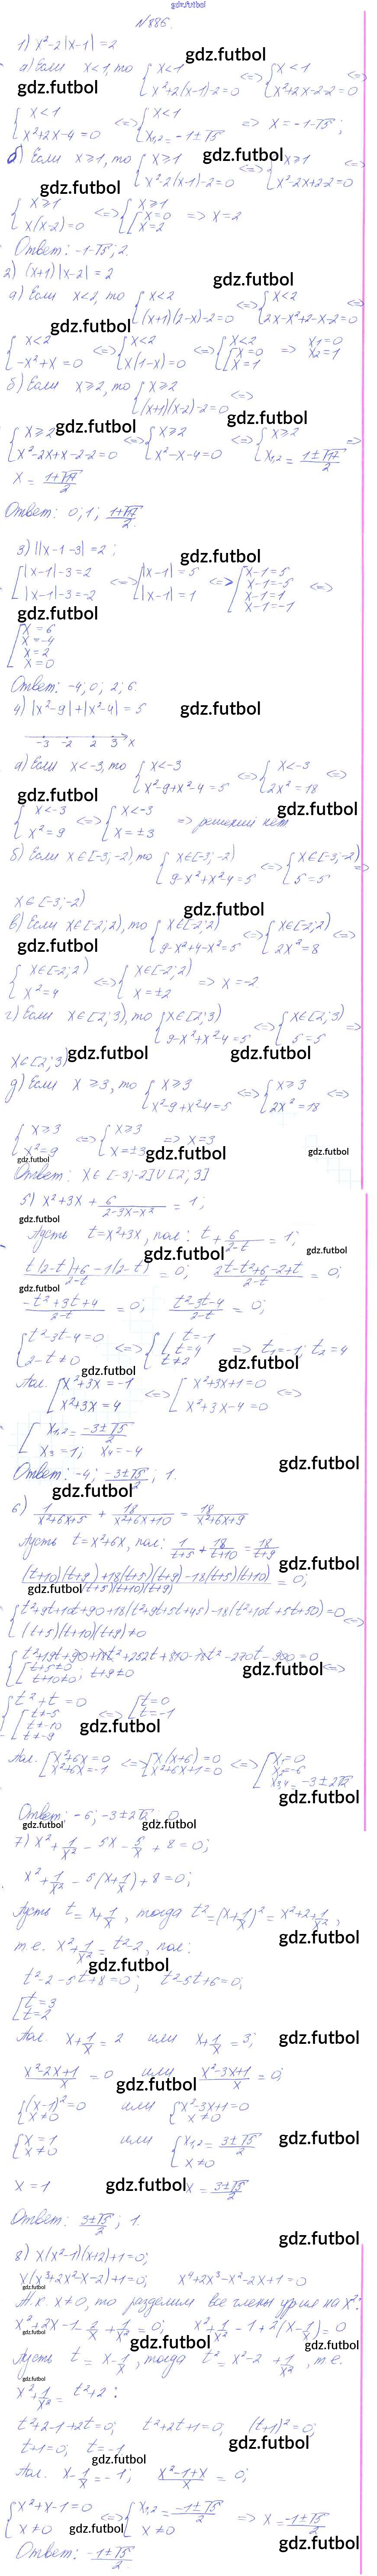 gdz.futbol
№886.
1) x²-2|x-1|=2
а) Если x<1, то { x<1 <=> { x<1 <=>
x²+2(x-1)-2=0 x²+2x-2-2=0
{ x<1 <=> { x<1 => x=-1-√5;
x²+2x-4=0 x₁,₂=-1±√5
б) Если x≥1, то { x≥1 <=> { x≥1 <=>
x²-2(x-1)-2=0 x²-2x+2-2=0
{ x≥1 <=> { x≥1 => x=2
x(x-2)=0 [ x=0 x=2
Ответ: -1-√5; 2.
2) (x+1)|x-2|=2
а) Если x<2, то { x<2 <=> { x<2 <=>
(x+1)(2-x)-2=0 2x-x²+2-x-2=0
{ x<2 <=> { x<2 <=> { x<2 => x₁=0
-x²+x=0 x(1-x)=0 [ x=0 x=1 x₂=1
б) Если x≥2, то { x≥2 <=>
(x+1)(x-2)-2=0
{ x≥2 <=> { x≥2 <=> { x≥2 =>
x²-2x+x-2-2=0 x²-x-4=0 x₁,₂=(1±√17)/2
x=(1+√17)/2
Ответ: 0; 1; (1+√17)/2.
3) ||x-1-3|=2;
[ |x-1|-3=2 <=> [ |x-1|=5 <=> [ x-1=5 x-1=-5 <=>
|x-1|-3=-2 |x-1|=1 x-1=1 x-1=-1
[ x=6
x=-4
x=2
x=0
Ответ: -4; 0; 2; 6.
4) |x²-9|+|x²-4|=5
-3 -2 2 3 x
а) Если x<-3, то { x<-3 <=> { x<-3 <=>
x²-9+x²-4=5 2x²=18
{ x<-3 <=> { x<-3 => решений нет
x²=9 x=±3
б) Если x∈[-3;-2), то { x∈[-3;-2) <=> { x∈[-3;-2) =>
9-x²+x²-4=5 5=5
x∈[-3;-2)
в) Если x∈[-2;2), то { x∈[-2;2) <=> { x∈[-2;2) <=>
9-x²+4-x²=5 2x²=8
{ x∈[-2;2) <=> { x∈[-2;2) => x=-2
x²=4 x=±2
г) Если x∈[2;3), то { x∈[2;3) <=> { x∈[2;3) =>
9-x²+x²-4=5 5=5
x∈[2;3)
д) Если x≥3, то { x≥3 <=> { x≥3 <=>
x²-9+x²-4=5 2x²=18
{ x≥3 <=> { x≥3 => x=3
x²=9 x=±3
Ответ: x∈[-3;-2]∪[2;3]
5) x²+3x+6/(2-3x-x²)=1;
Пусть t=x²+3x, пол: t+6/(2-t)=1;
(t(2-t)+6-1(2-t))/(2-t)=0; (2t-t²+6-2+t)/(2-t)=0;
(-t²+3t+4)/(2-t)=0; (t²-3t-4)/(2-t)=0;
{ t²-3t-4=0 <=> { [ t=-1 t=4 => t₁=-1; t₂=4
2-t≠0 t≠2
Пол. [ x²+3x=-1 <=> [ x²+3x+1=0 <=>
x²+3x=4 x²+3x-4=0
[ x₁,₂=(-3±√5)/2
x₃=1; x₄=-4
Ответ: -4; (-3±√5)/2; 1.
6) 1/(x²+6x+5)+18/(x²+6x+10)=18/(x²+6x+9)
Пусть t=x²+6x, пол: 1/(t+5)+18/(t+10)=18/(t+9)
((t+10)(t+9)+18(t+5)(t+9)-18(t+5)(t+10))/((t+5)(t+10)(t+9))=0;
{ t²+9t+10t+90+18(t²+9t+5t+45)-18(t²+10t+5t+50)=0 <=>
(t+5)(t+10)(t+9)≠0
{ t²+19t+90+18t²+252t+810-18t²-270t-900=0 <=>
[ t+5≠0 t+10≠0; t+9≠0
{ t²+t=0 <=> [ t=0
[ t≠-5 t≠-10 t≠-9 t=-1
Пол. [ x²+6x=0 <=> [ x(x+6)=0 <=> [ x₁=0
x²+6x=-1 x²+6x+1=0 x₂=-6 x₃,₄=-3±2√2
Ответ: -6; -3±2√2; 0
7) x²+1/x²-5x-5/x+8=0;
x²+1/x²-5(x+1/x)+8=0;
Пусть t=x+1/x, тогда t²=(x+1/x)²=x²+2+1/x²,
т.е. x²+1/x²=t²-2, пол:
t²-2-5t+8=0; t²-5t+6=0;
[ t=3
t=2
Пол. x+1/x=2 или x+1/x=3;
(x²-2x+1)/x=0 или (x²-3x+1)/x=0;
{ (x-1)²=0 или { x²-3x+1=0
x≠0 x≠0
{ x=1 или { x₁,₂=(3±√5)/2
x≠0 x≠0
x=1 x=(3±√5)/2
Ответ: (3±√5)/2; 1.
8) x(x²-1)(x+2)+1=0;
x(x³+2x²-x-2)+1=0; x⁴+2x³-x²-2x+1=0
Т.к. x≠0, то разделим все члены ур-ия на x²:
x²+2x-1-2/x+1/x²=0; x²+1/x²-1+2(x-1/x)=0
Пусть t=x-1/x, тогда t²=x²-2+1/x², т.е.
x²+1/x²=t²+2:
t²+2-1+2t=0; t²+2t+1=0; (t+1)²=0;
t+1=0; t=-1
Пол. x-1/x=-1; (x²-1+x)/x=0;
{ x²+x-1=0 <=> { x₁,₂=(-1±√5)/2 => x=(-1±√5)/2
x≠0 x≠0
Ответ: (-1±√5)/2